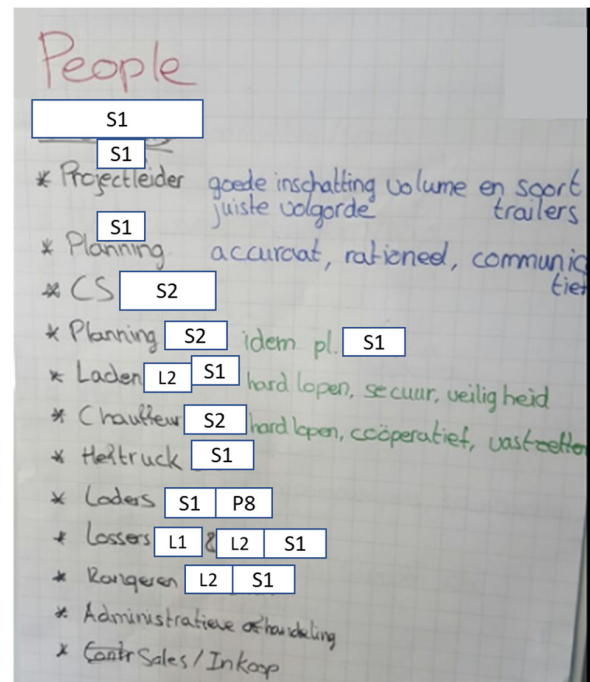 People
S1
S1
* Projectleider goede inschatting volume en soort
juiste volgorde trailers
S1
* Planning accuraat, rationeel, communica
tief
* CS S2
* Planning S2 idem pl. S1
* Laden L2 S1 hard lopen, secuur, veiligheid
* Chauffeur S2 hard lopen, coöperatief, vastzetten
* Heftruck S1
* Loders S1 P8
* Lossers L1 & L2 S1
* Rangeren L2 S1
* Administratieve afhandeling
* Contr Sales / Inkoop